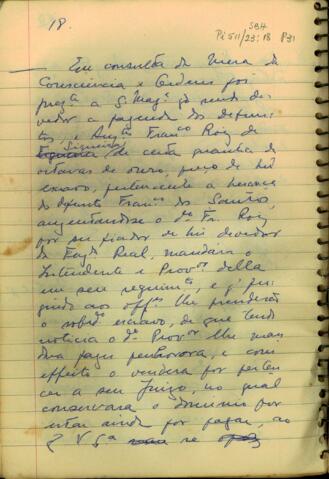 18.
SBH
Pi 511/23:18 P31
Em consulta da Mesa da
Consciencia e Ordens foi
presᵗᵉ a S. Magᵉ q̃ sendo de-
vedor a fazenda dos defun-
tos, e Ausᵗᵉˢ Franᶜᵒ Roiz de
Siqueira de certa quantia de
oitavas de ouro, preço de hũ
escravo, pertencente a herança
do defunto Franᶜᵒ dos Santos,
o dᵒ Fr. Roiz
por ser fiador de hũ devedor
da Fazᵈᵃ Real, mandara o
Intendente e Provᵒʳ della
em seu requerimᵗᵒ, e
ao offᵃˡ lhe
o sobrᵈᵒ escravo, de que tendo
noticia o dᵒ Provᵒʳ lhe man-
dou fazer penhora, e com
effeito o vendera por perten-
cer a seu Juizo, no qual
conservara o dominio por
estar ainda por pagar, ao
q̃ V Sᵃ se